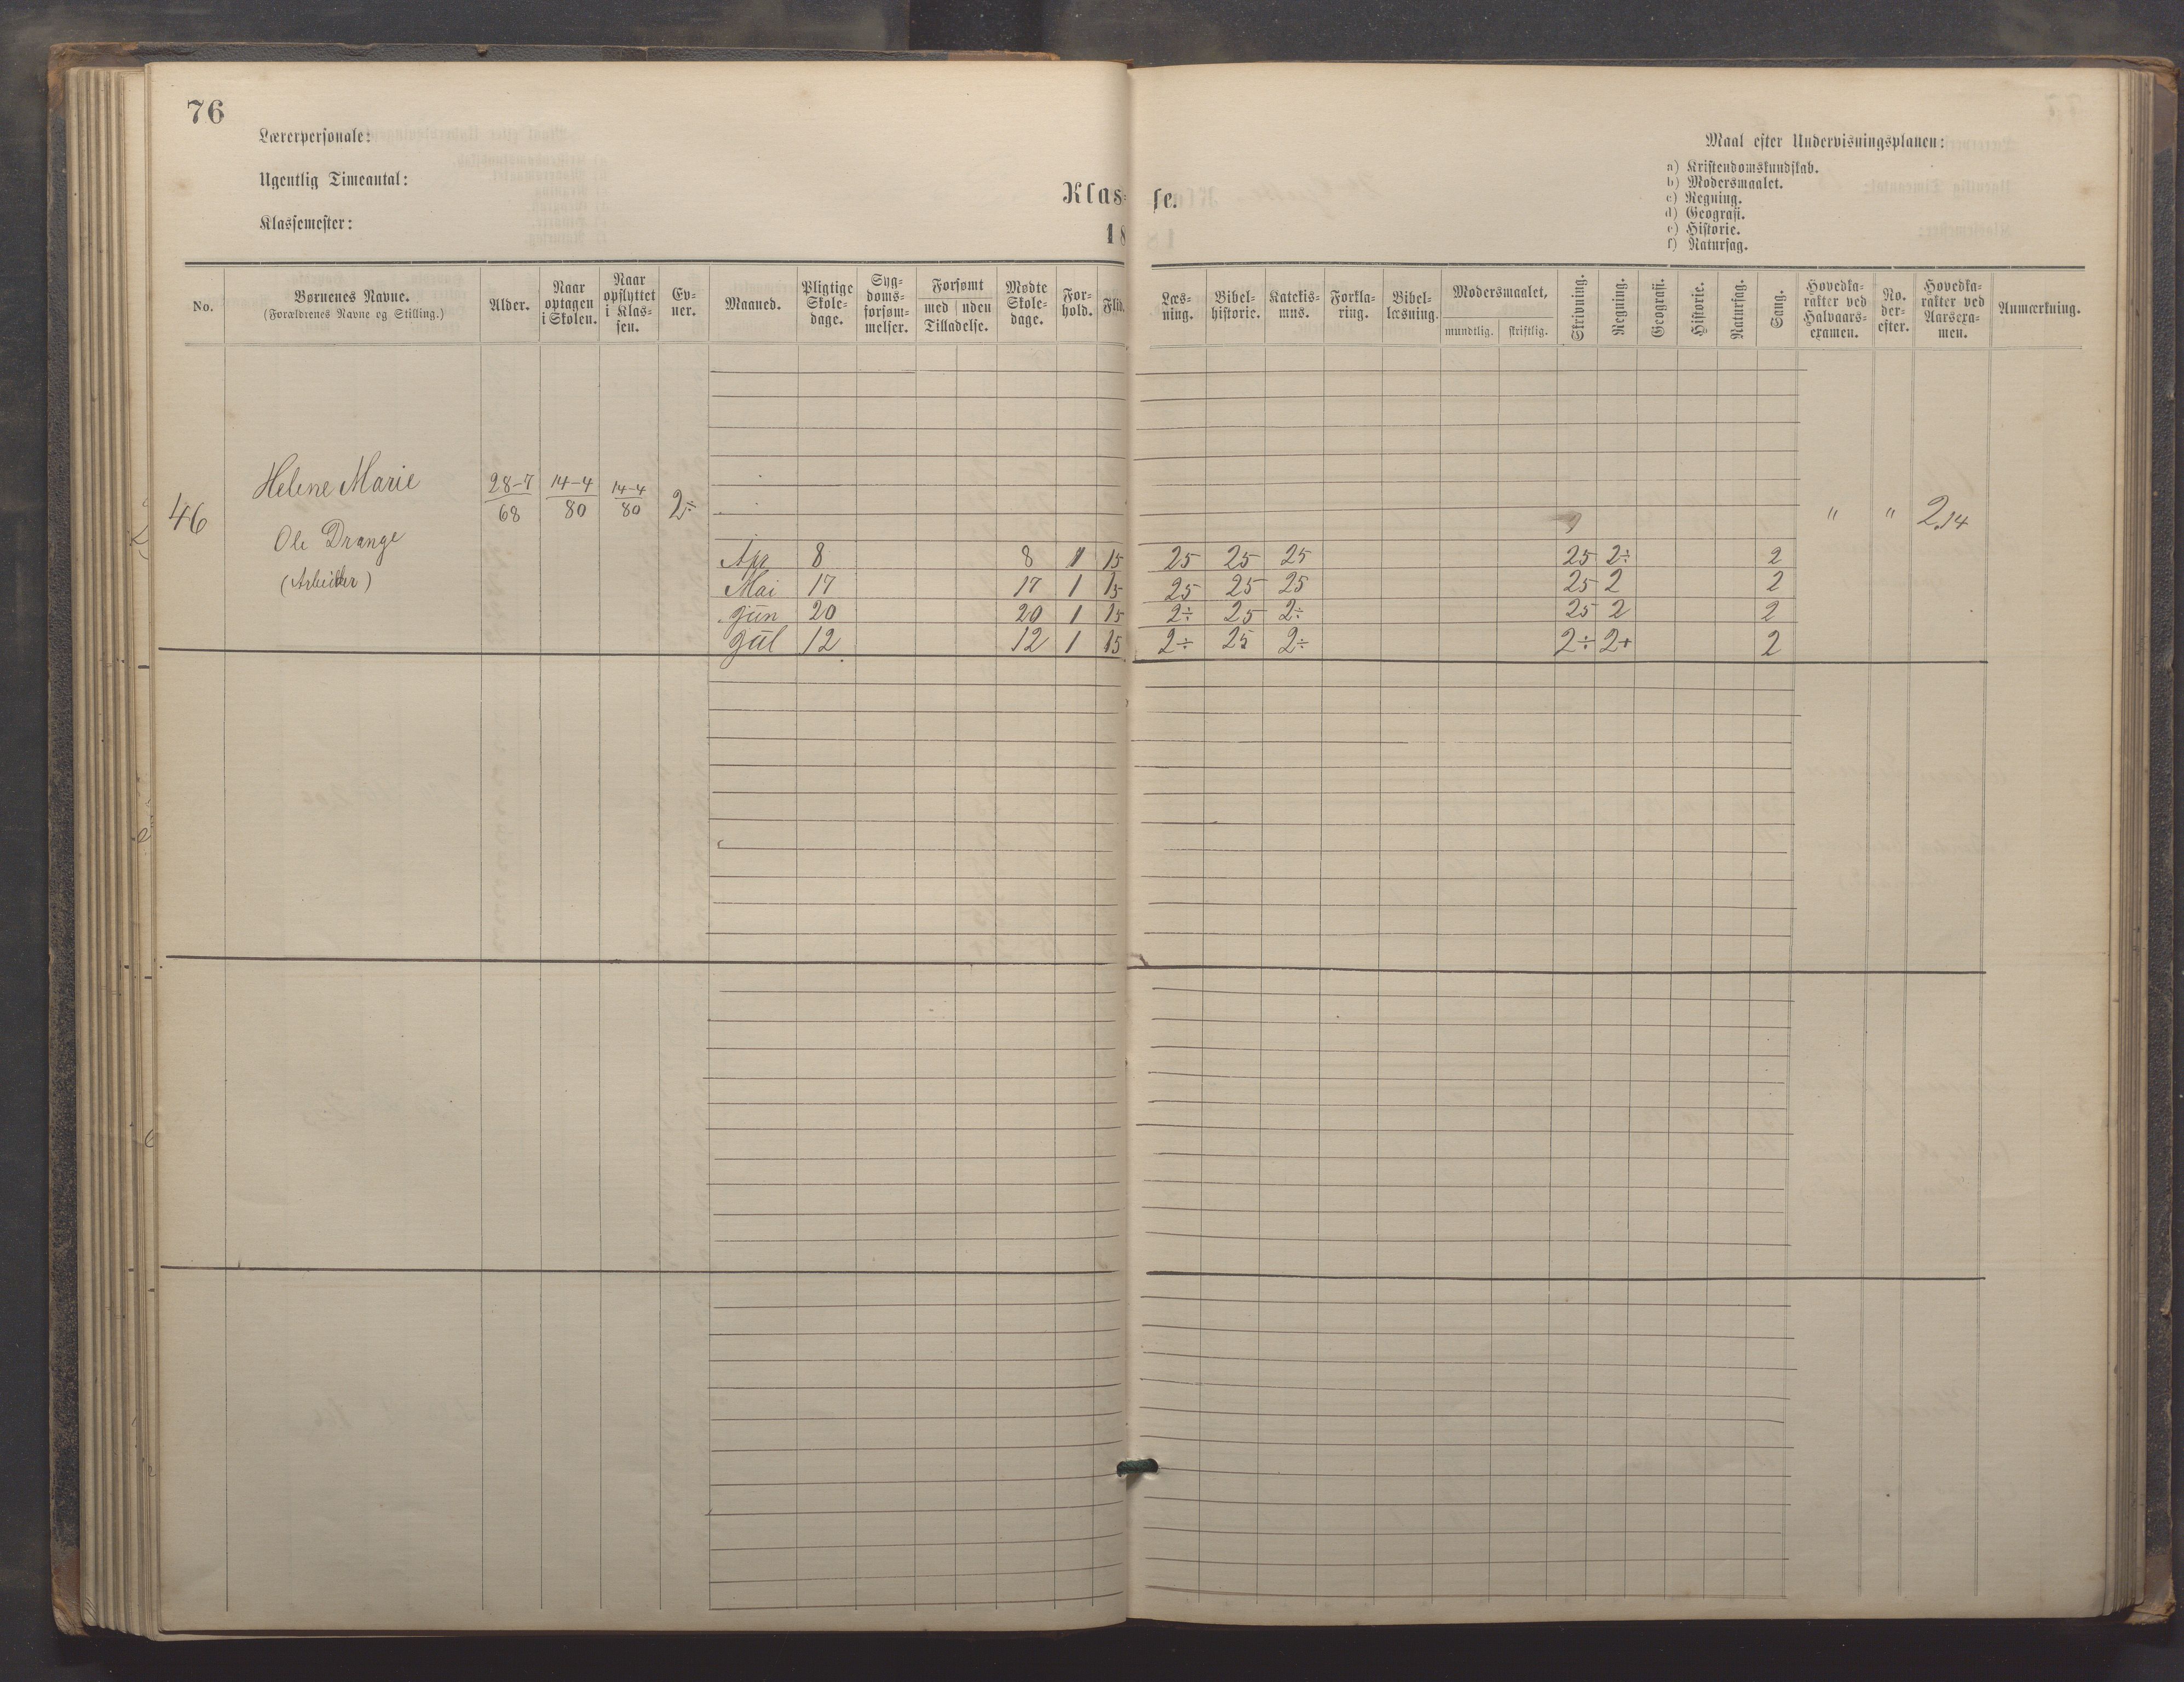 76
Lærerpersonale:
Ugentlig Timeantal:
Klassemester:
Klas= se.
18
Maal efter Undervisningsplanen:
a) Kristendomskundskab.
b) Modersmaalet.
c) Regning.
d) Geografi.
e) Historie.
f) Naturfag.
No. Børnenes Navne. (Forældrenes Navne og Stilling.) Alder. Naar optagen i Skolen. Naar opflyttet i Klas- sen. Ev- ner. Maaned. Pligtige Skole- dage. Syg- doms- forsøm- melser. Forsømt med uden Tilladelse. Mødte Skole- dage. For- hold. Flid. Læs- ning. Bibel- historie. Katekis- mus. Forkla- ring. Bibel- læsning. Modersmaalet, mundtlig. skriftlig. Skrivning. Regning. Geografi. Historie. Naturfag. Sang. Hovedka- rakter ved Halvaars- examen. No. der- efter. Hovedka- rakter ved Aarsexa- men. Anmærkning.
46 Helene Marie 28-7/68 14-4/80 14-4/80 2÷ " " 2,14
Ole Drange
(Arbeider)
Apr 8 8 1 15 25 25 25 25 2÷ 2
Mai 17 17 1 15 25 25 25 25 2 2
Jun 20 20 1 15 2÷ 25 2÷ 25 2 2
Jul 12 12 1 15 2÷ 25 2÷ 2÷ 2+ 2